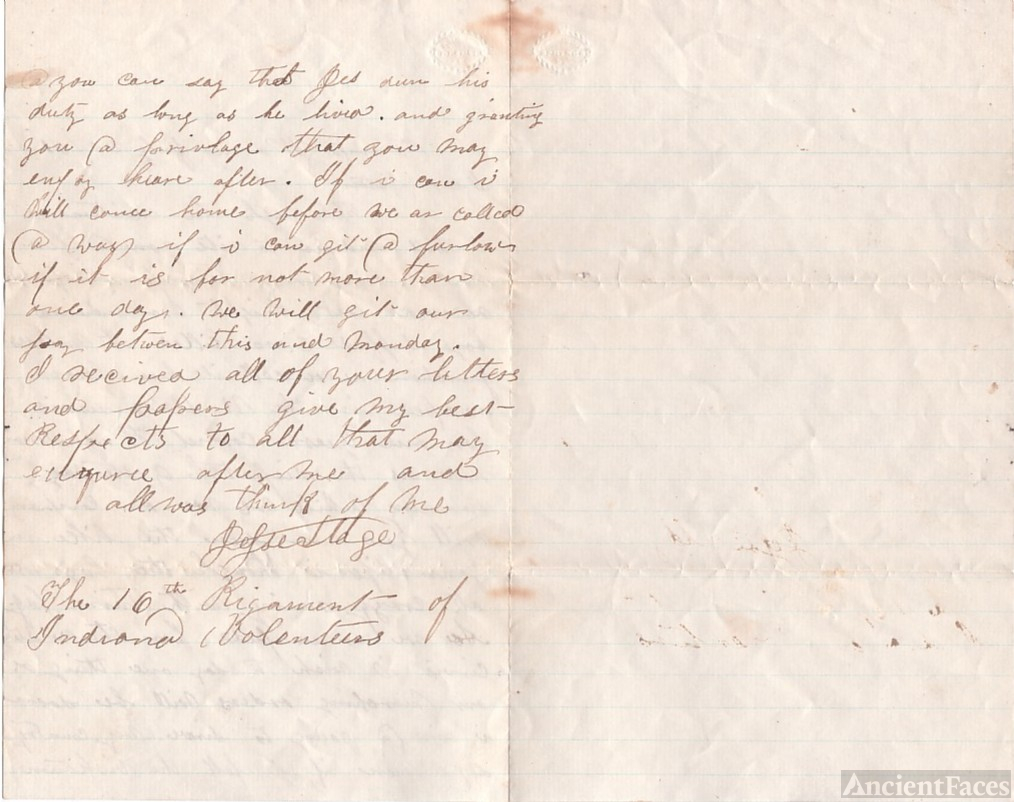 a you can say that Jes dun his
duty as long as he lived. and granting
you (a privlage that you may
enjoy heare after. If i can i
will come home before we ar called
(a way) if i can git (a furlow
if it is for not more than
one day. we will git our
pay betwen this and monday.
I recived all of your letters
and papers give my best
Respects to all that may
enquree after me and
allwas think of me
Jesse Stage
The 16th Rigament of
Indiana Volenteers
AncientFaces